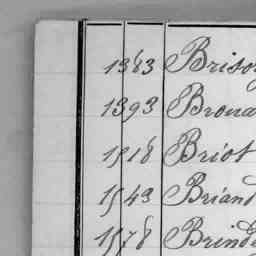 1383 Brison
1393 Broua
1518 Briot
1543 Briand
1578 Brinde